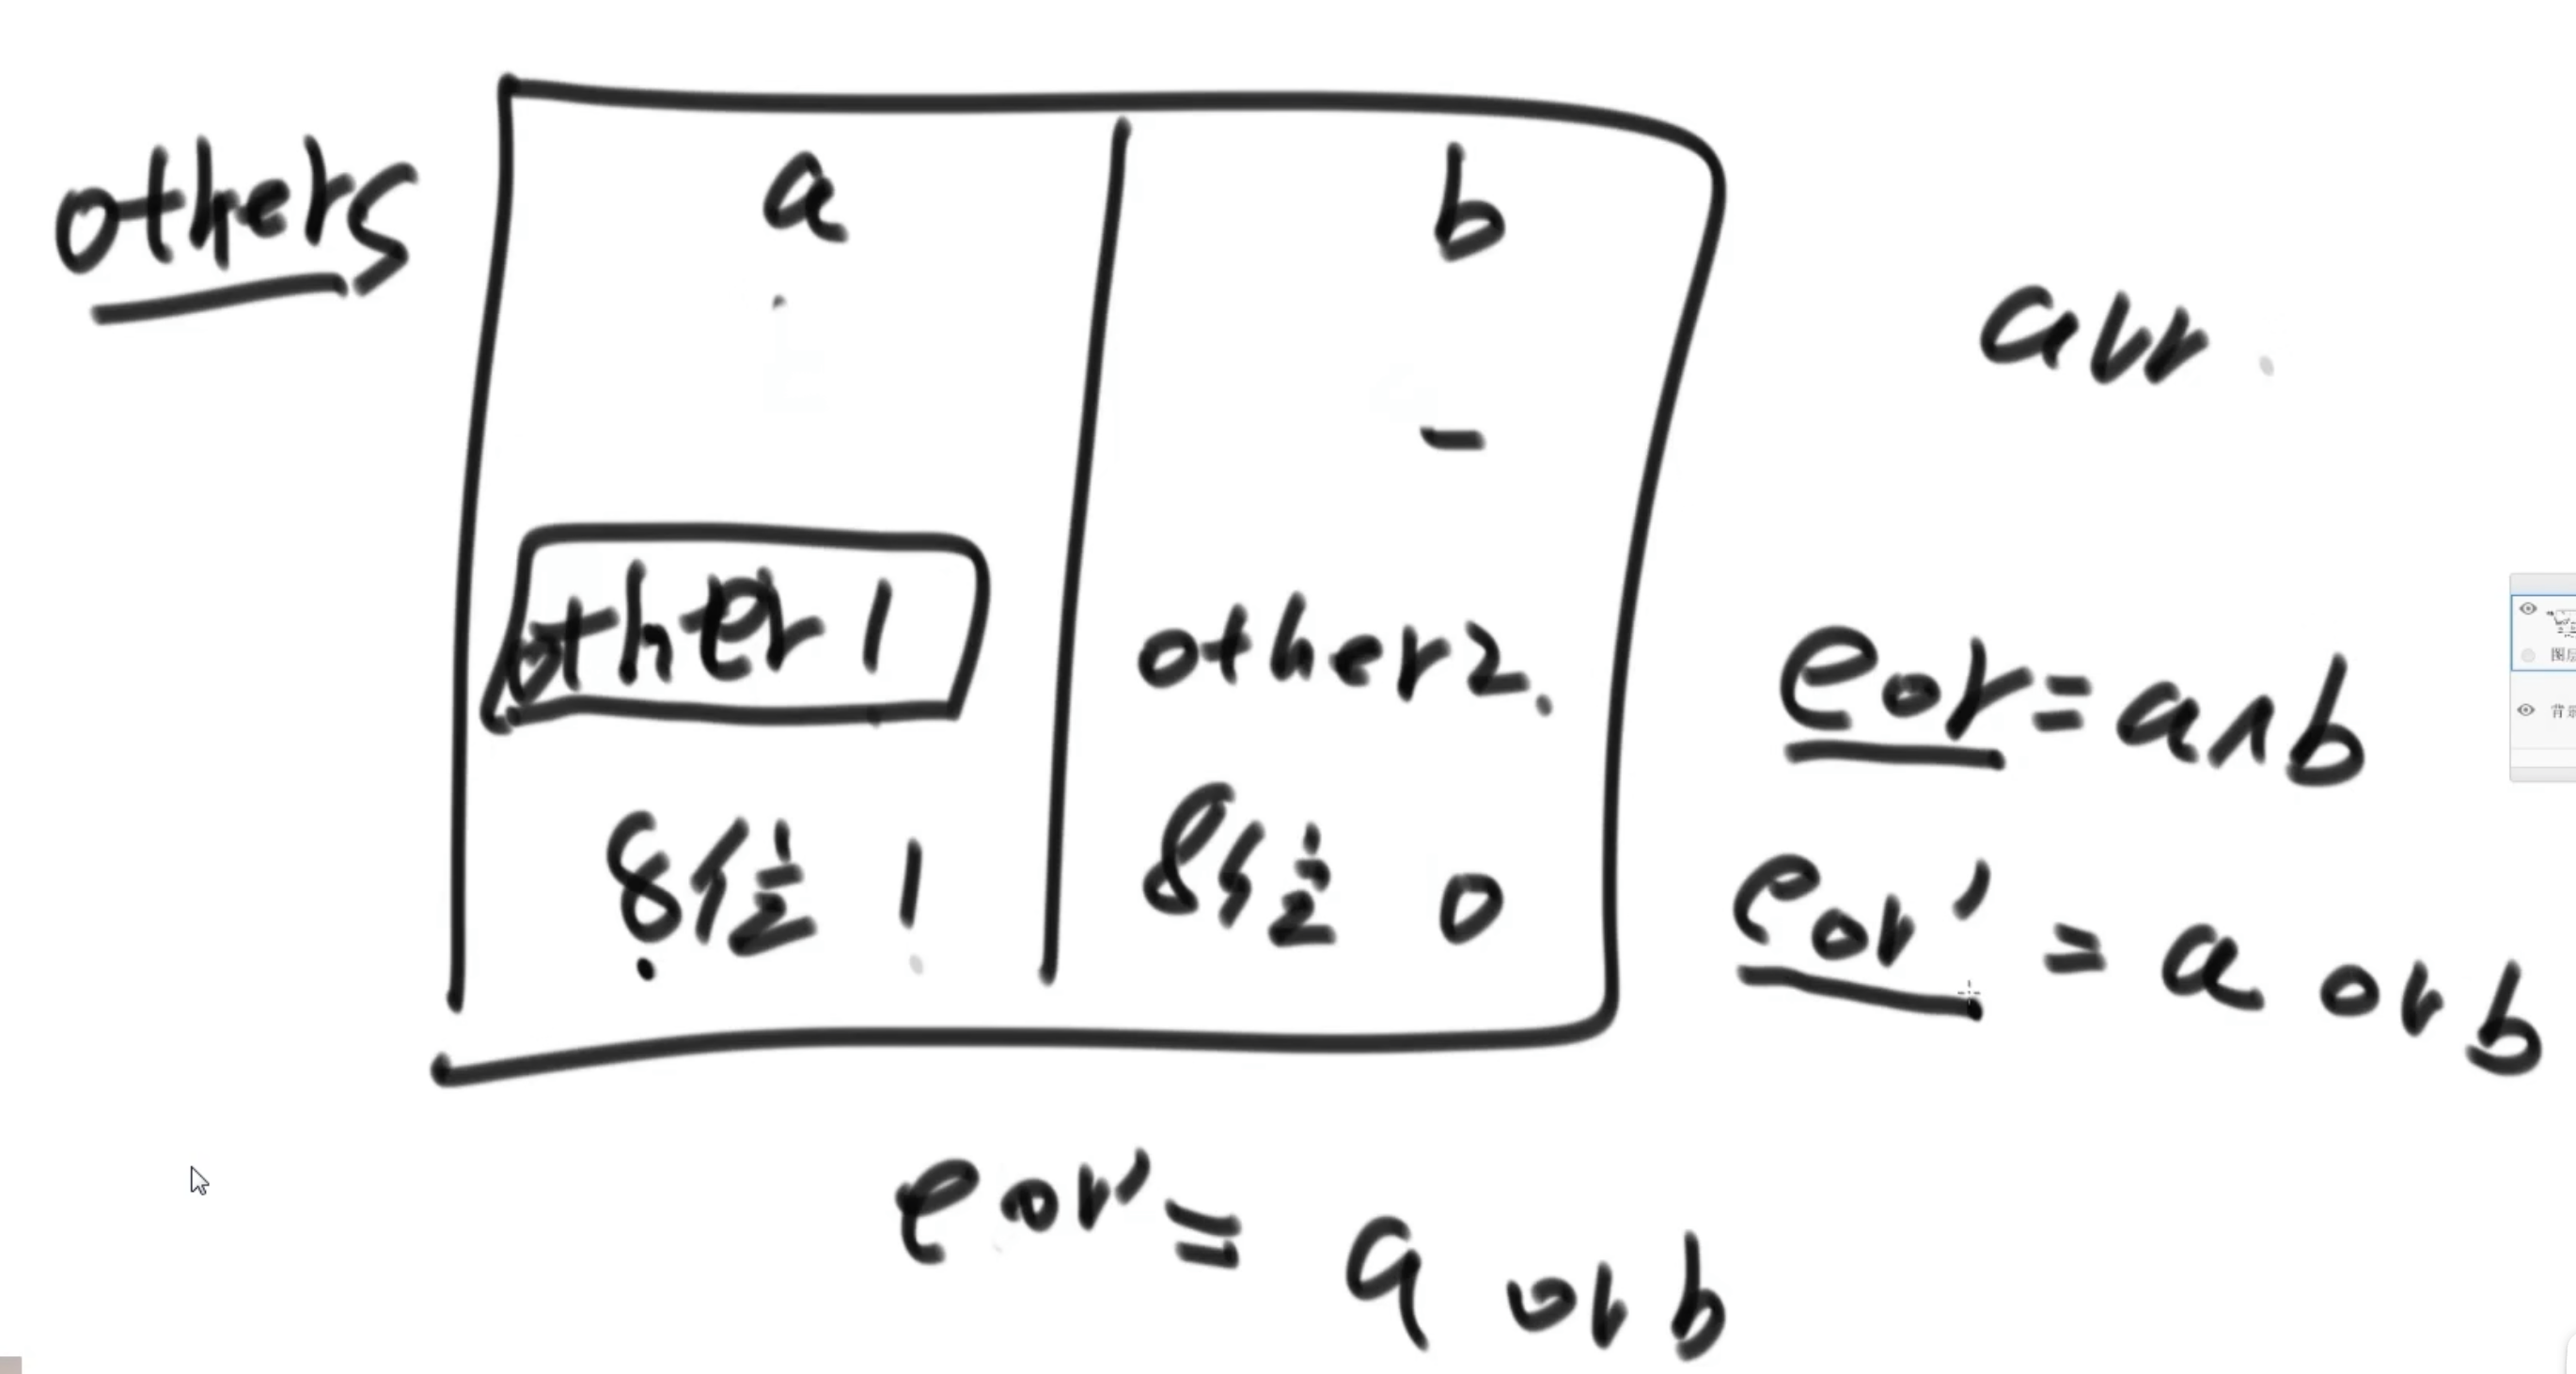 others
a
b
arr
other1
other2
8位 1
8位 0
eor=a^b
eor'=a or b
eor'=a or b